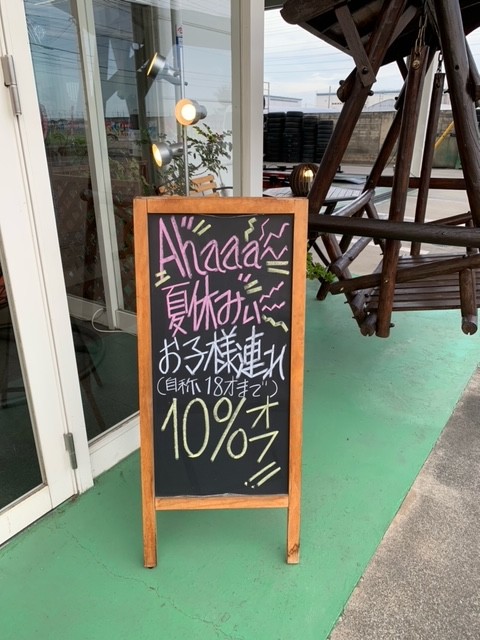 A"haaa~
夏休みぃ
お子様連れ
(自称、18才まで)
10%オフ!!